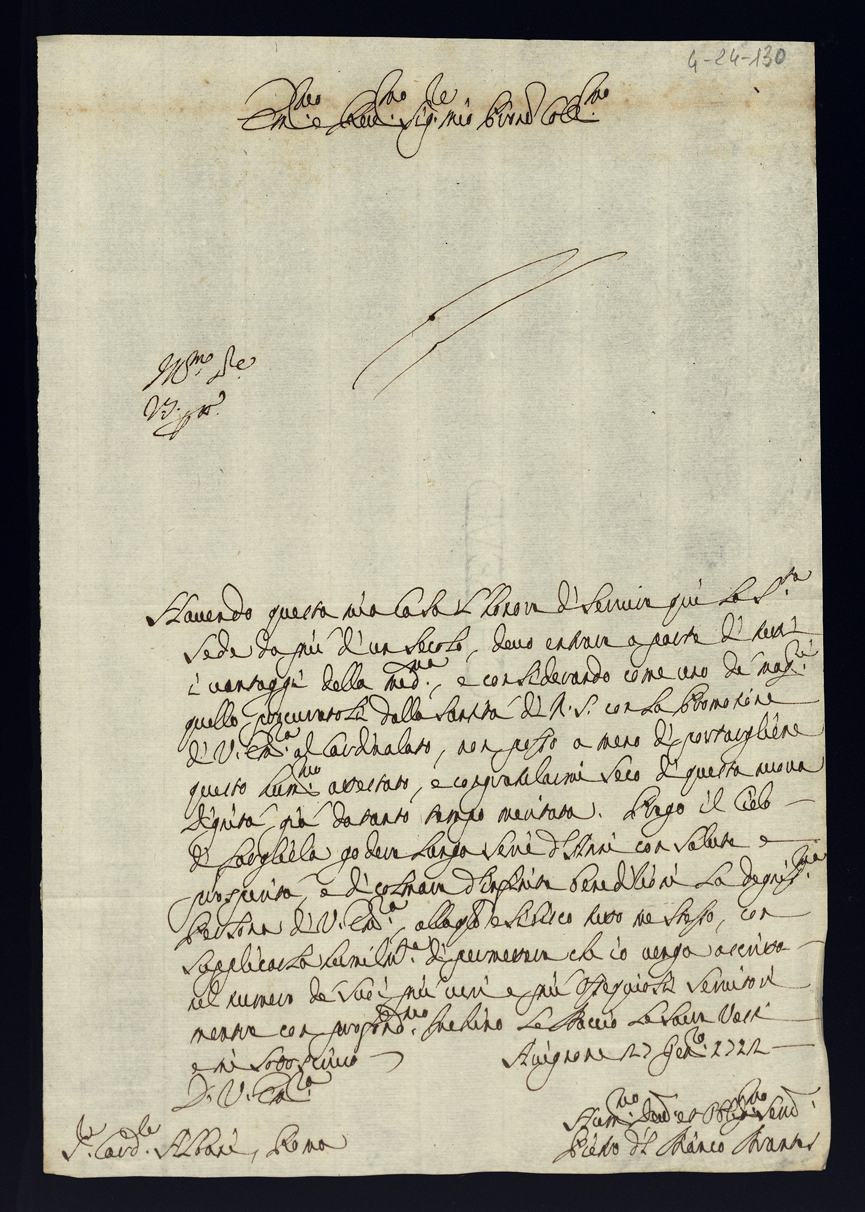 4-24-130
Em.mo e Rev.mo Sig.re mio P̃rone Coll.mo
Havendo questa mia Casa l'honore di servire qui la S.ta
Sede da più d'un secolo, devo entrare a parte di tutti
i vantaggi della med.ma, e considerando come uno de' mag.ri
quello procuratoli dalla Santità di N. S. con la Promotione
di V. Em.a al Cardinalato, non posso a meno di portargliene
questo hum.mo attestato, e congratularmi seco di questa nuova
Dignità già da tanto tempo meritata. Prego il Cielo
di farglièla godere longa serie d'Anni con salute e
prosperità, e di colmare d'infinite benedittioni la degniss.ma
Persona di V. Em.a, alla q̃le sacrifico tutto me stesso, con
supplicarla humilm.te di permettere che io venga ascritto
nel numero de' suoi più veri e più ossequiosi servitori
mentre con profond.mo inchino le baccio le sacre Vesti
e mi sottoscrivo Avignone 27 Gen.ro 1722
D. V. Em.a
Hum.mo Dev.mo et Obblig.mo Serv.
S.r Card.le Albani, Roma Pietro del Bianco